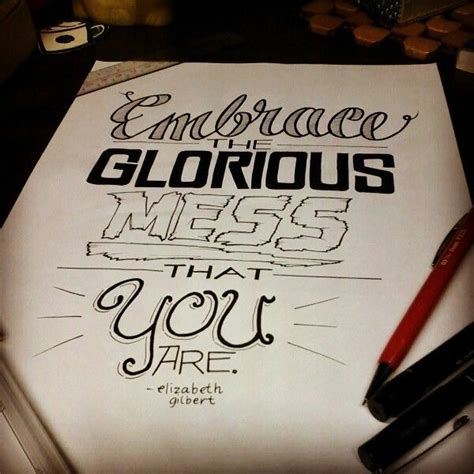 Embrace
THE
GLORIOUS
MESS
THAT
YOU
ARE.
- elizabeth
gilbert